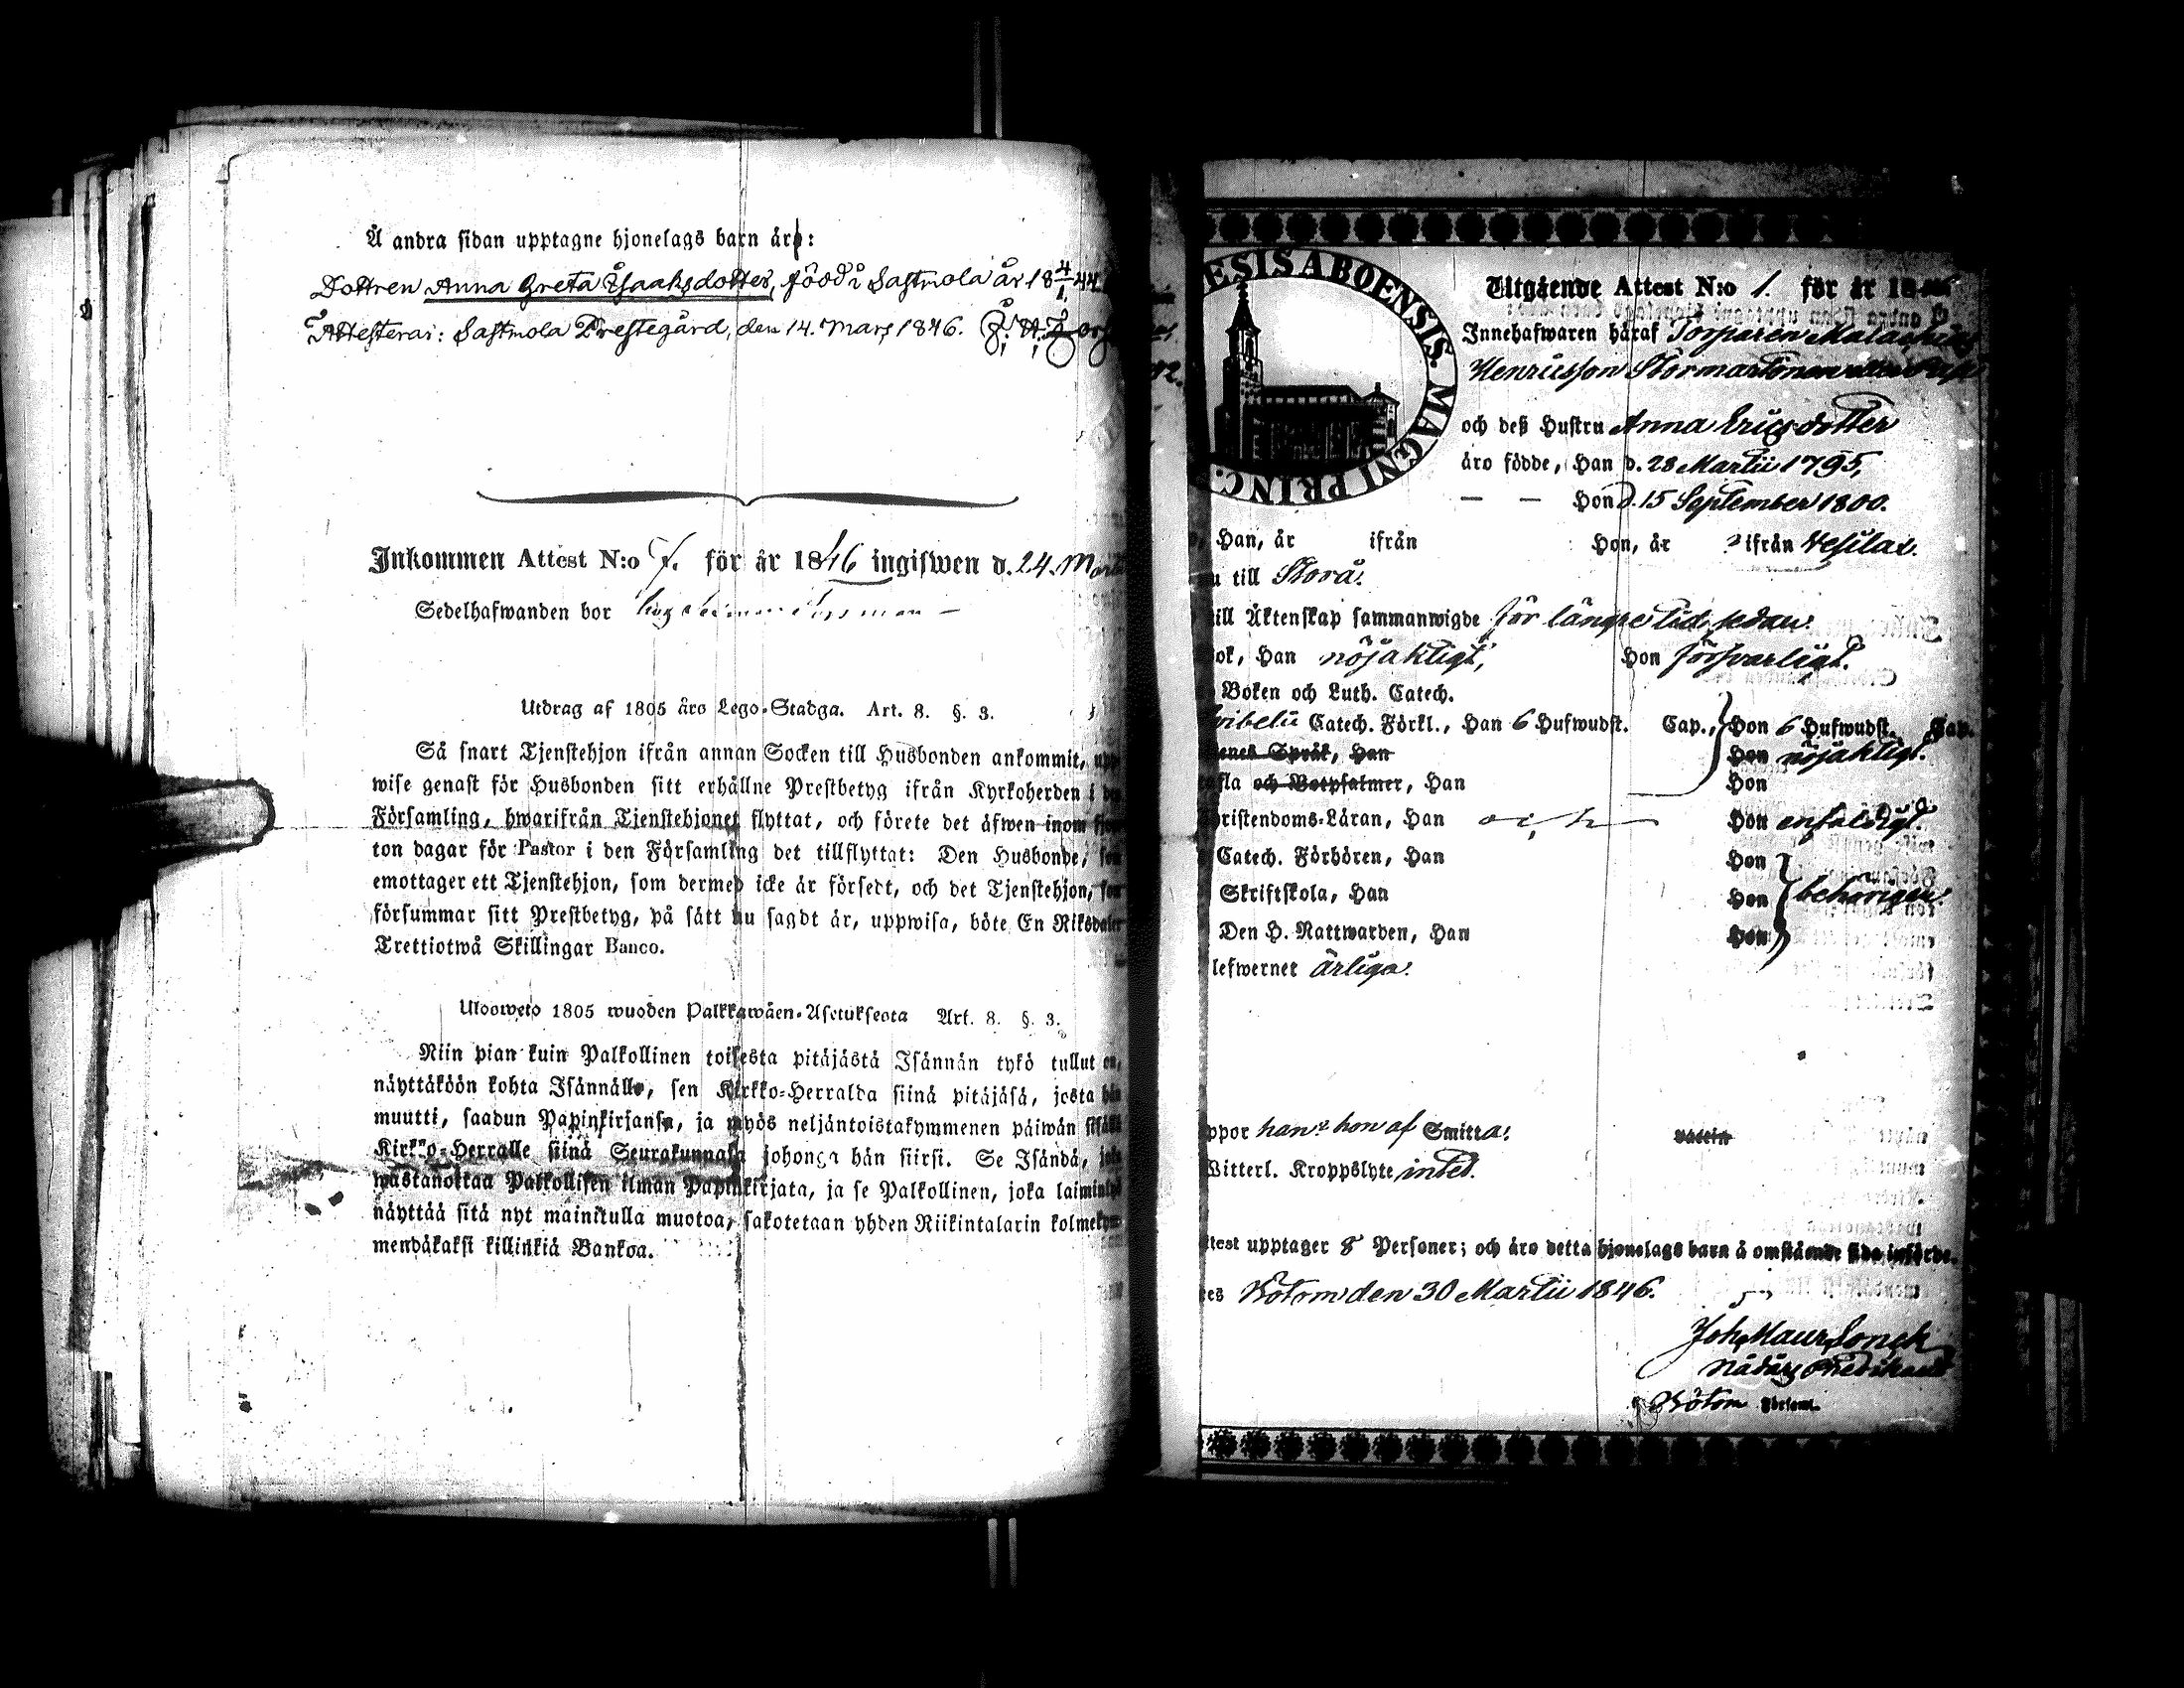 Å andra sidan upptagne hjonelags barn äro:
Dottren Anna Greta Isaaksdotter, född i Sastmola år 18 4/1 44
Attesterar: Sastmola Prestegård, den 14. Mars 1846.
Inkommen Attest N:o 7. för år 1846 ingifwen d. 24. Mars
Sedelhafwanden bor
Utdrag af 1805 års Lego-Stadga. Art. 8. §. 3.
Så snart Tjenstehjon ifrån annan Socken till Husbonden ankommit, upp
wise genast för Husbonden sitt erhållne Prestbetyg ifrån Kyrkoherden i den
Församling, hwarifrån Tjenstehjonet flyttat, och förete det äfwen inom fjor
ton dagar för Pastor i den Församling det tillflyttat: Den Husbonde, som
emottager ett Tjenstehjon, som dermed icke är försedt, och det Tjenstehjon, som
försummar sitt Prestbetyg, på sätt nu sagdt är, uppwisa, böte En Riksdaler
Trettiotwå Skillingar Banco.
Ulosweto 1805 wuoden Palkkawäen-Asetuksesta Art. 8. §. 3.
Niin pian kuin Palkollinen toisesta pitäjästä Isännän tykö tullut on,
näyttäköön kohta Isännälle, sen Kirkko-Herralda siinä pitäjäsä, josta hän
muutti, saadun Papinkirjansa, ja myös neljäntoistakymmenen päiwän sisällä
Kirkko-Herralle siinä Seurakunnasa johonga hän siirsi. Se Isändä, joka
wastanottaa Palkollisen ilman Papinkirjata, ja se Palkollinen, joka laiminlyö
näyttää sitä nyt mainitulla muotoa, sakotetaan yhden Riikintalarin kolmekym
mendäkaksi killinkiä Bankoa.
ESIS ABOENSIS. MAGNI PRINC.
Utgående Attest N:o 1. för år 18
Innehafwaren häraf Torparen Malachias
Henricsson
och deß Hustru Anna Ericsdotter
äro födde, Han d. 28 Martii 1795,
— — Hon d. 15 September 1800.
Han, är ifrån Hon, är ifrån Vesilax.
till Storå.
till Äktenskap sammanwigde för längre tid sedan.
ok, Han nöjaktigt, Hon försvarligt.
Boken och Luth. Catech.
Catech. Förkl., Han 6 Hufwudst. Cap., Hon 6 Hufwudst. Cap.
Språk, Han Hon nöjaktigt.
och Botpsalmer, Han Hon
ristendoms-Läran, Han Hon enfaldigt.
Catech. Förhören, Han Hon
Skriftskola, Han Hon behörigen.
Den H. Nattwarden, Han Hon
lefwernet ärliga.
ppor han o hon af Smitta.
Witterl. Kroppslyte intet.
test upptager 8 Personer; och äro detta hjonelags barn å omstående sida införde.
es Bötom den 30 Martii 1846.
Joh. Maur. Lonck
Nådårs Predikant
Bötom Församl.